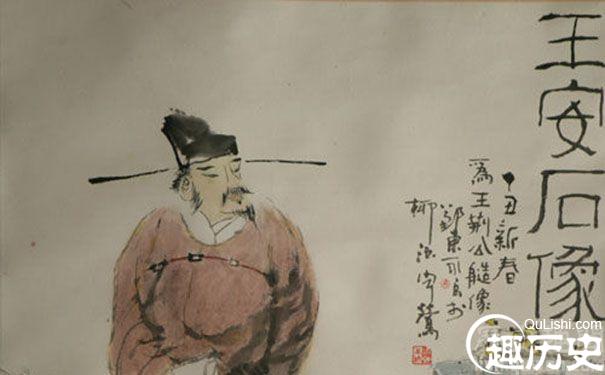 王安石像
丁丑新春
為王荊公艁像
於
柳浪聞鶯
QuLishi.com
趣历史